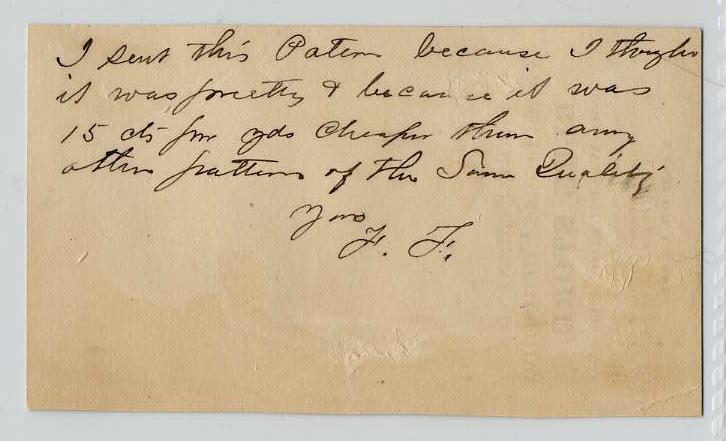 I sent this Patern because I thought
it was pretty & because it was
15 cts pr yds Cheaper then any
other pattern of the Same Quality
Yors
F. F.